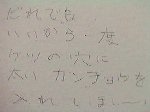 だれでも
いいから一度
ケツの穴に
太いカンチョウを
入れてほしい